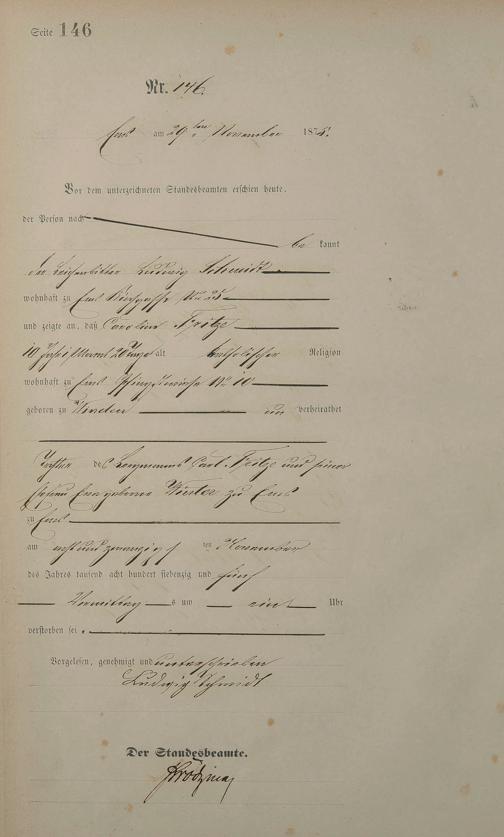 Seite 146
Nr. 146.
Ems am 29ten November 1875.
Vor dem unterzeichneten Standesbeamten erschien heute,
der Person nach
be kannt
der Leichenbitter Ludwig Schmidt
wohnhaft zu Ems Kirchgasse No 25
und zeigte an, daß Caroline Fritze
10 Jahr, Monat Tage alt katholischer Religion
wohnhaft zu Ems No 10
geboren zu Winden un verheirathet
Tochter des Bergmanns Carl Fritze und seiner
Ehefrau geborene Winter zu Ems
zu Ems
am acht und zwanzigsten November
des Jahres tausend acht hundert siebenzig und fünf
Vormittags um ein Uhr
verstorben sei.
Vorgelesen, genehmigt und unterschrieben
Ludwig Schmidt
Der Standesbeamte.